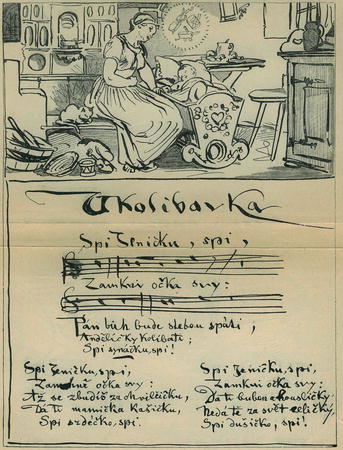 Ukolibavka
Spi Jeničku, spi,
Zamkni očka svy:
Pán bůh bude s tebou spáti,
Andělíčky kolíbati;
Spi synáčku, spi!
Spi Jeničku, spi,
očka svy:
Až se zbudíš za chvilčičku,
Dá ti mamička kašičku,
Spi srdéčko, spi.
Spi Jeničku, spi,
Zamkni očka svy:
Dá ti buben a housličky
Nedá tě za svět celičký,
Spi dušičko, spi!